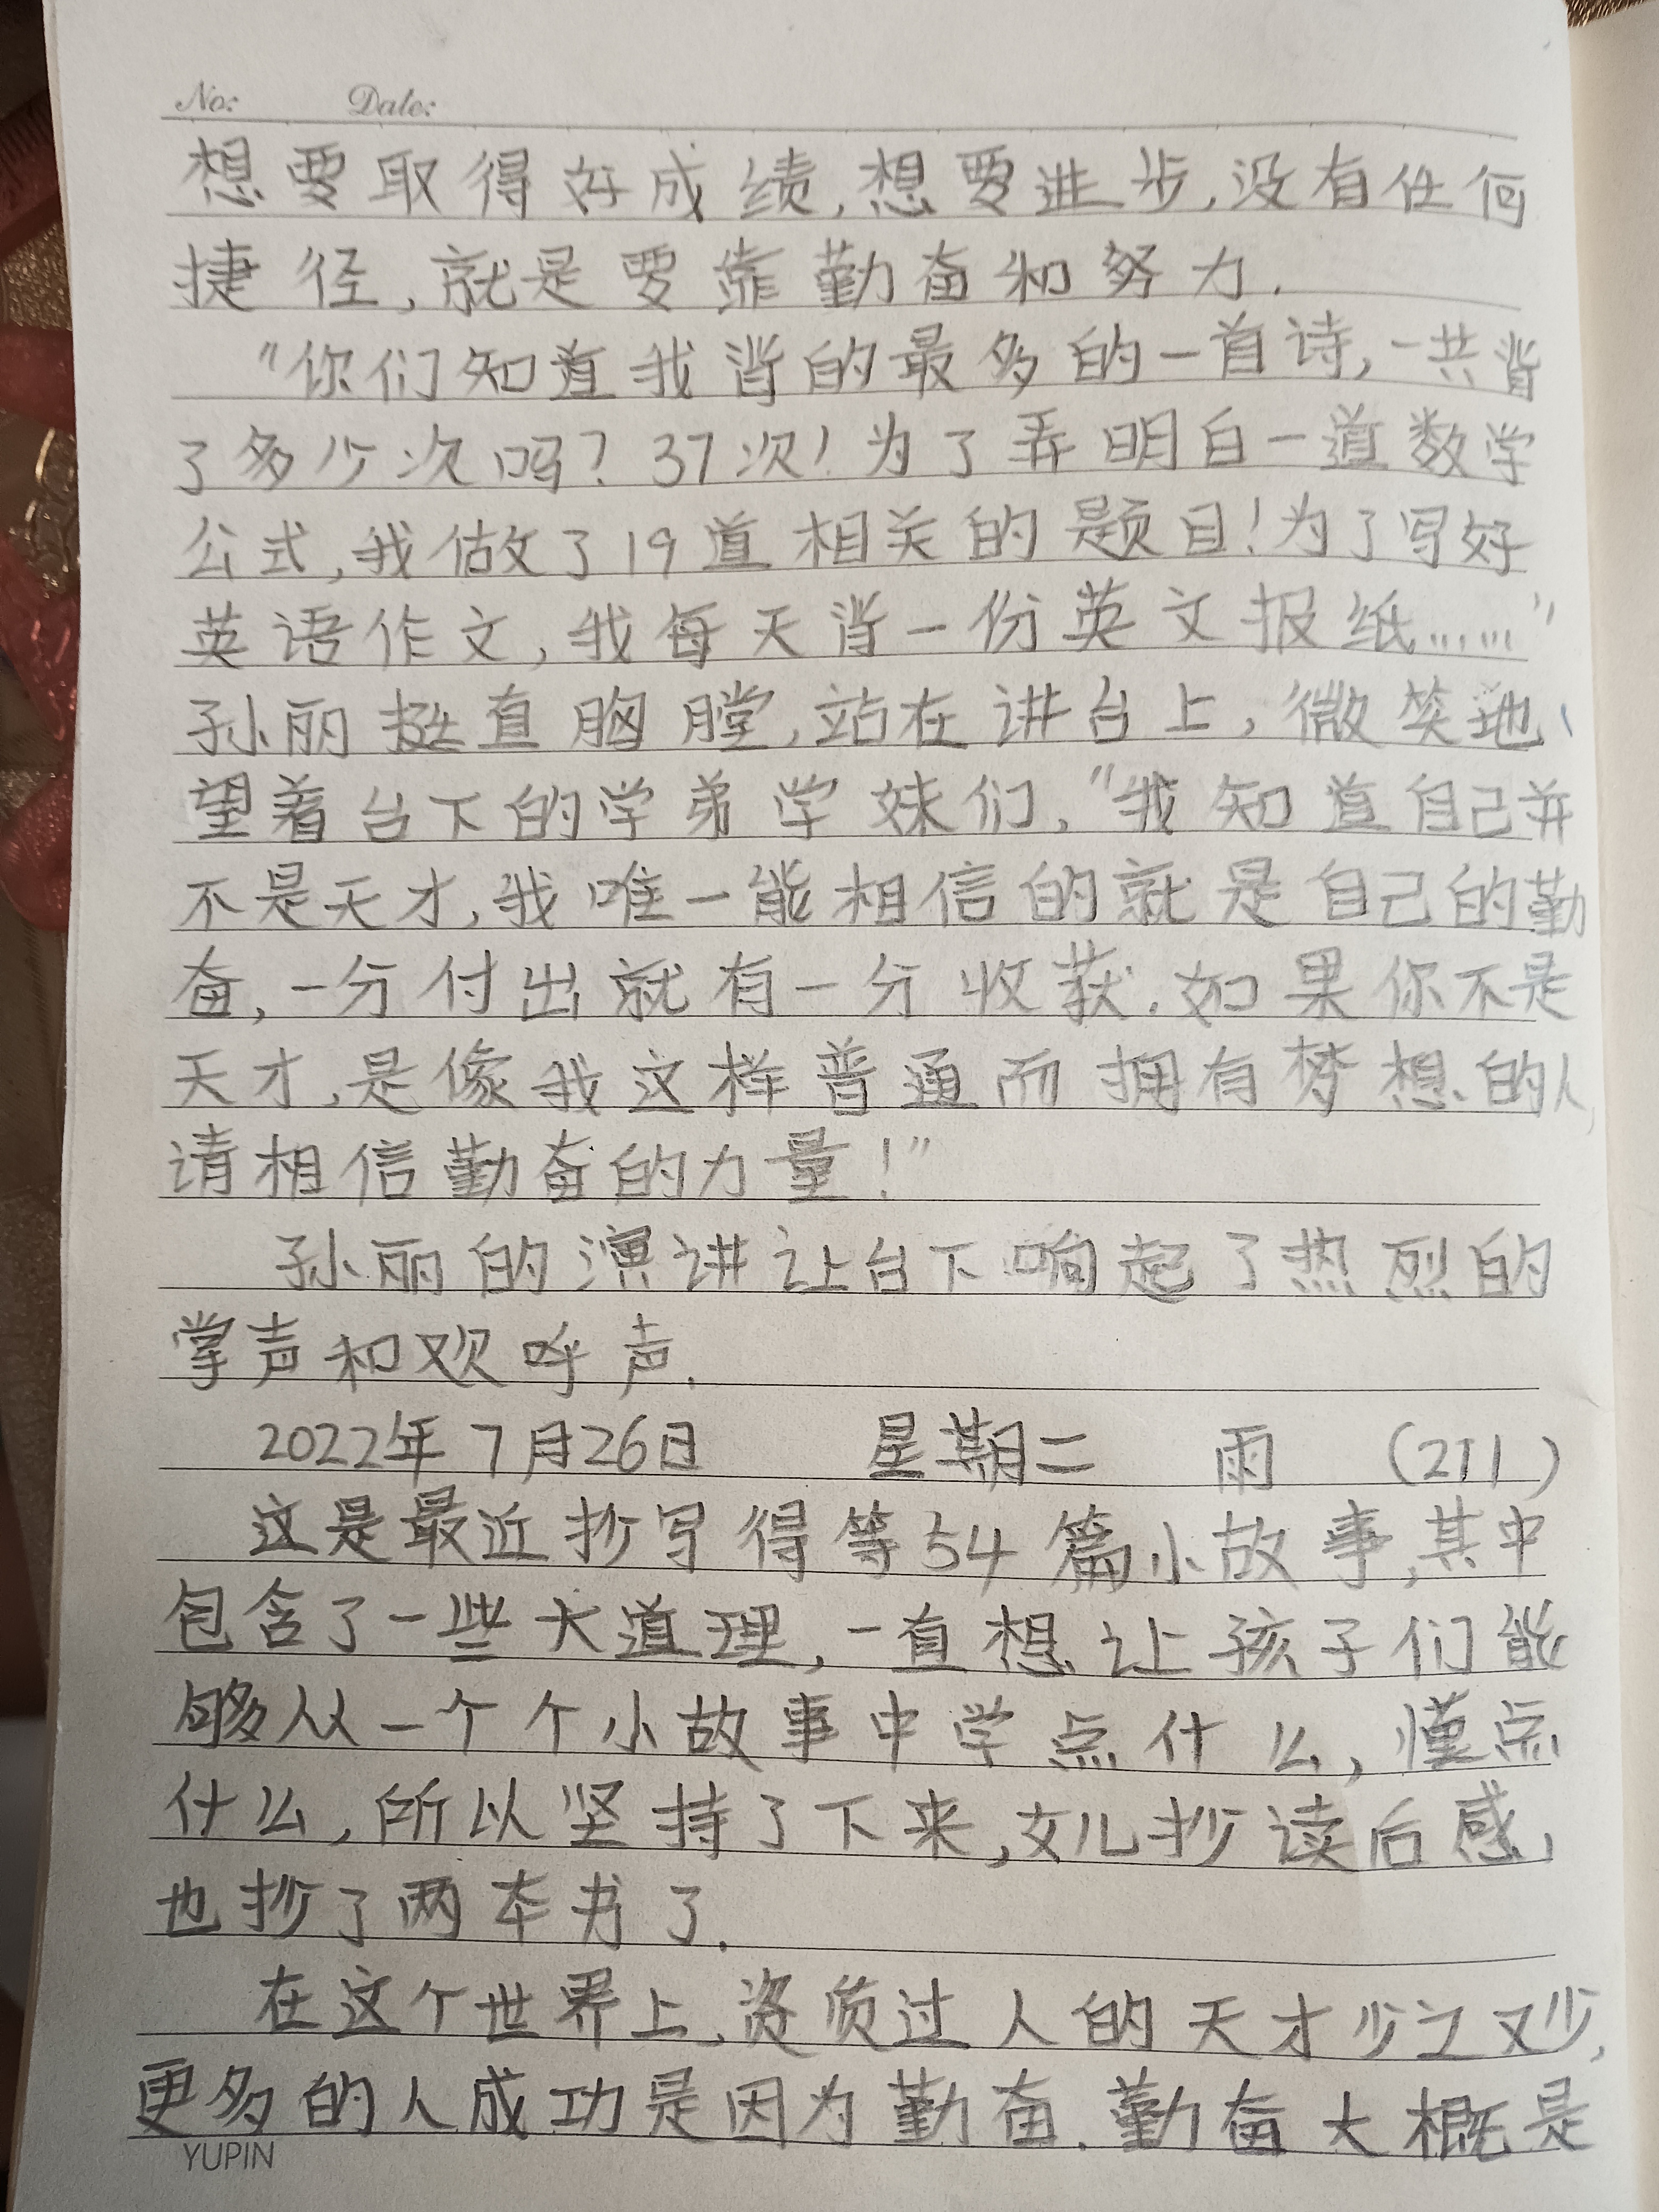 No: Date:
想要取得好成绩,想要进步,没有任何
捷径,就是要靠勤奋和努力.
"你们知道我背的最多的一首诗,一共背
了多少次吗?37次!为了弄明白一道数学
公式,我做了19道相关的题目!为了写好
英语作文,我每天背一份英文报纸……"
孙丽挺直胸膛,站在讲台上,微笑地
望着台下的学弟学妹们,"我知道自己并
不是天才,我唯一能相信的就是自己的勤
奋,一分付出就有一分收获.如果你不是
天才,是像我这样普通而拥有梦想的人,
请相信勤奋的力量!"
孙丽的演讲让台下响起了热烈的
掌声和欢呼声.
2022年7月26日 星期二 雨 (211)
这是最近抄写得等54篇小故事,其中
包含了一些大道理,一直想让孩子们能
够从一个个小故事中学点什么,懂点
什么,所以坚持了下来,女儿抄读后感,
也抄了两本书了.
在这个世界上,资质过人的天才少之又少,
更多的人成功是因为勤奋.勤奋大概是
YUPIN